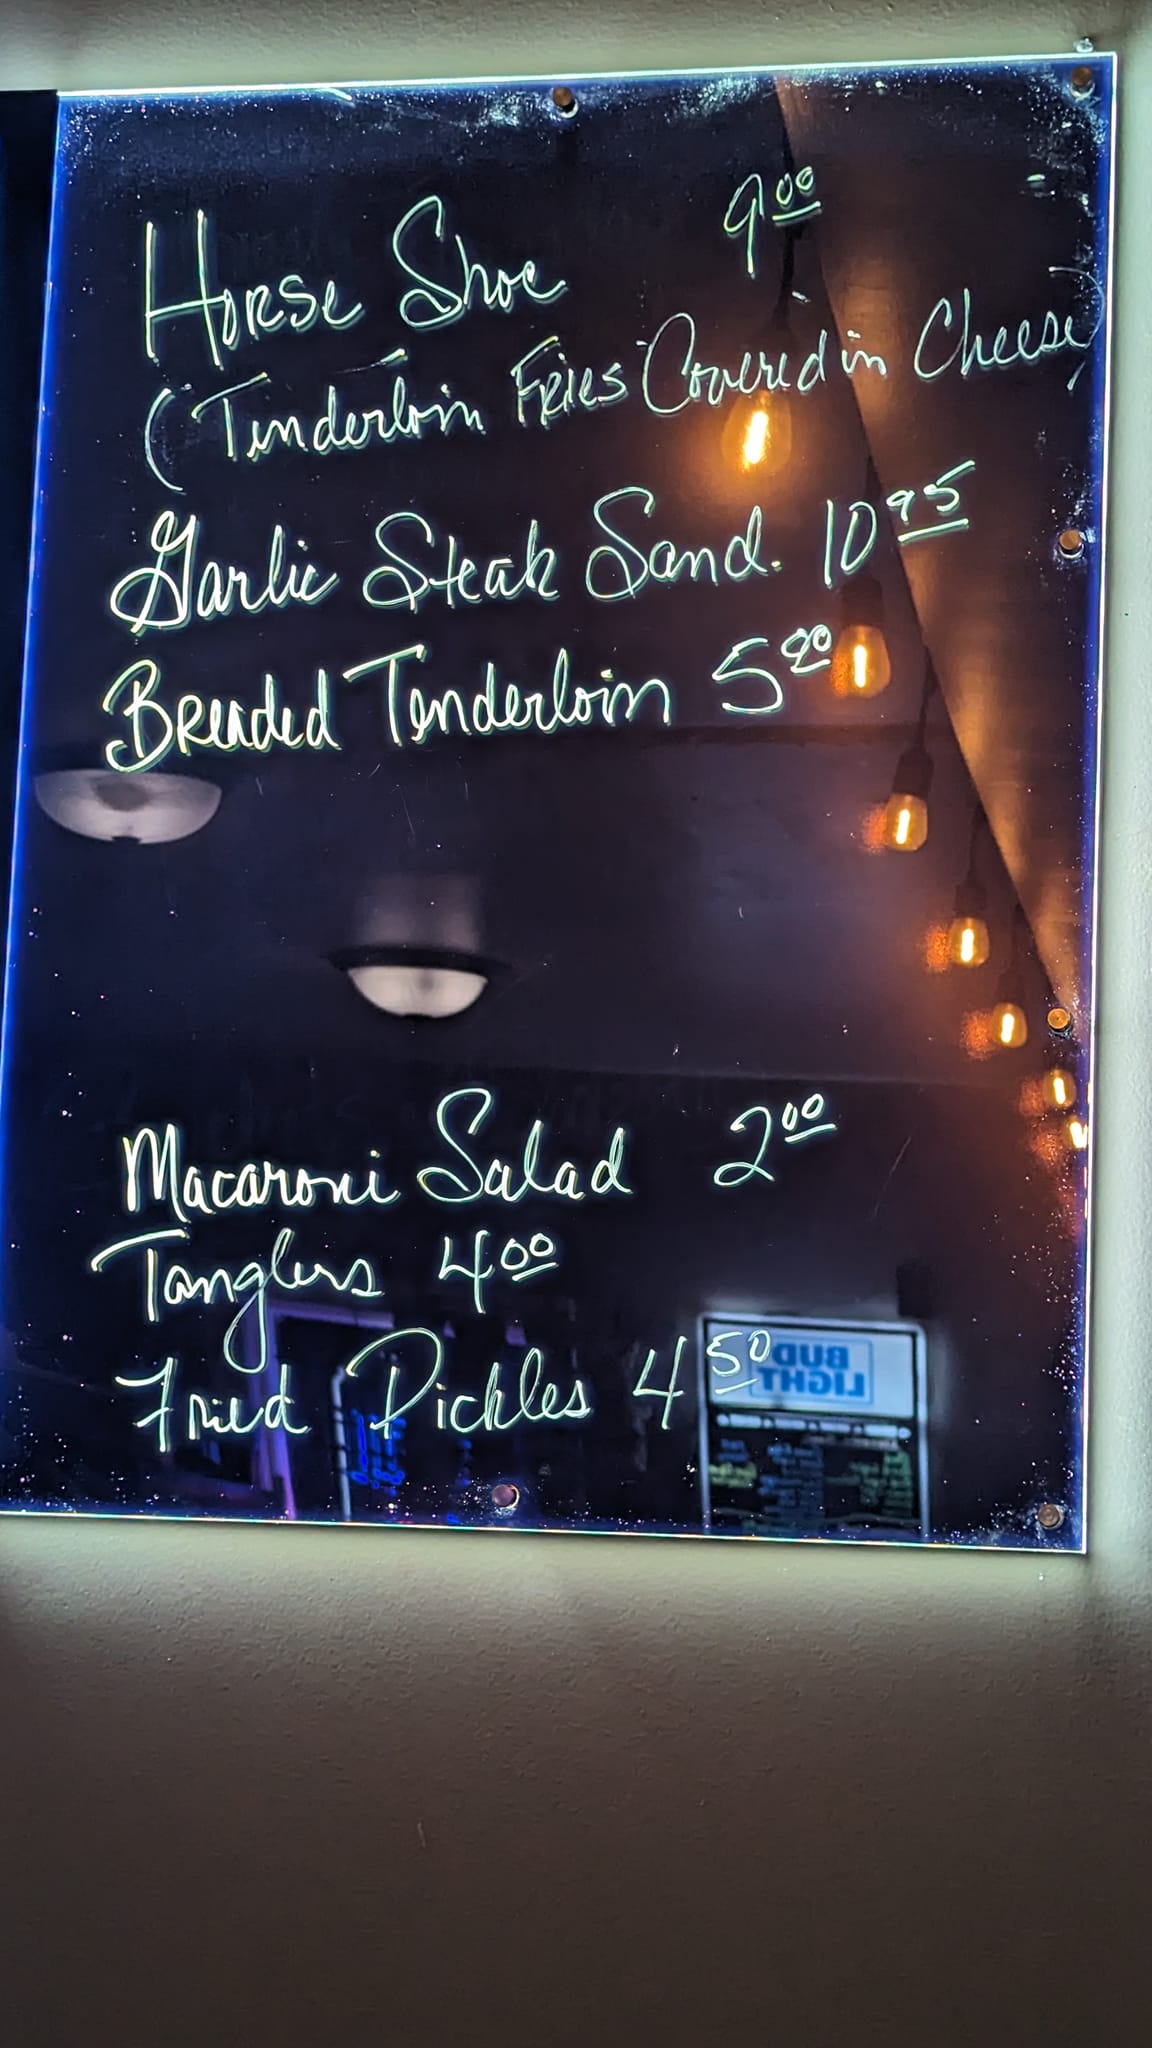 Horse Shoe 9.00
(Tenderloin Fries Covered in Cheese)
Garlic Steak Sand. 10.95
Breaded Tenderloin 5.00
Macaroni Salad 2.00
Tanglers 4.00
Fried Pickles 4.50
BUD
LIGHT